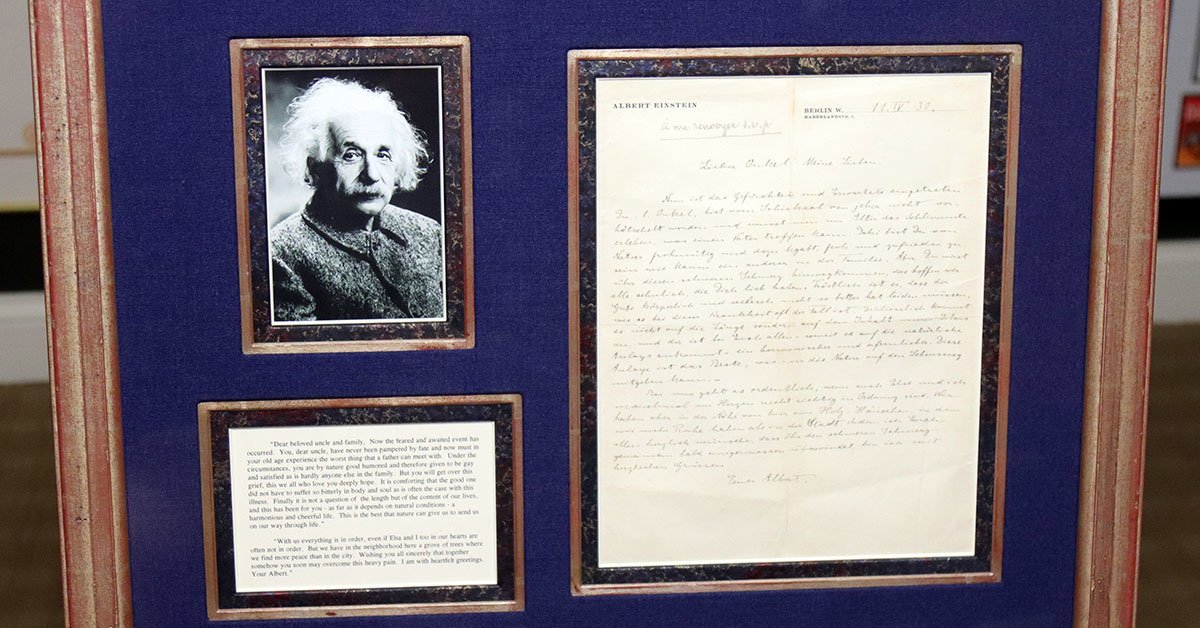 "Dear beloved uncle and family, Now the feared and awaited event has
occurred. You, dear uncle, have never been pampered by fate and now must in
your old age experience the worst thing that a father can meet with. Under the
circumstances, you are by nature good humored and therefore given to be gay
and satisfied as is hardly anyone else in the family. But you will get over this
grief, this we all who love you deeply hope. It is comforting that the good one
did not have to suffer so bitterly in body and soul as is often the case with this
illness. Finally it is not a question of the length but of the content of our lives,
and this has been for you - as far as it depends on natural conditions - a
harmonious and cheerful life. This is the best that nature can give us to send us
on our way through life."
"With us everything is in order, even if Elsa and I too in our hearts are
often not in order. But we have in the neighborhood here a grove of trees where
we find more peace than in the city. Wishing you all sincerely that together
somehow you soon may overcome this heavy pain. I am with heartfelt greetings.
Your Albert."
ALBERT EINSTEIN
BERLIN W. 11.IV 30.
HABERLANDSTR. 5
à me renvoyer s.v.p
Lieber Onkel! Meine Lieben!
Nun ist das Gefürchtete und Erwartete eingetreten.
Du, l. Onkel, bist vom Schicksal von jeher nicht ver-
hätschelt worden und musst nun im Alter das Schlimmste
erleben, was einen Vater treffen kann. Dabei bist Du von
Natur frohmütig und dazu begabt, froh und zufrieden zu
sein wie kaum ein anderer in der Familie. Aber Du wirst
über diesen schweren Schmerz hinwegkommen, das hoffen wir
alle sehnlich, die Dich lieb haben. Tröstlich ist es, dass der
Gute körperlich und seelisch nicht so bitter hat leiden müssen,
wie es bei dieser Krankheit oft der Fall ist. Schliesslich kommt
es nicht auf die Länge sondern auf den Inhalt unseres Lebens
an und der ist bei Euch allen - soweit es auf die natürliche
Anlage ankommt - ein harmonischer und erfreulicher. Diese
Anlage ist das Beste, was uns die Natur auf den Lebensweg
mitgeben kann. -
Bei uns geht es ordentlich, wenn auch Elsa und ich
manchmal am Herzen nicht richtig in Ordnung sind. Wir
haben aber in der Nähe von hier ein Holz-Häuschen, in dem
wir mehr Ruhe haben als in der Stadt. Indem ich Euch
allen herzlich wünsche, dass Ihr den schweren Schmerz
gemeinsam bald einigermassen überwindet bin ich mit
herzlichen Grüssen
Euer Albert.